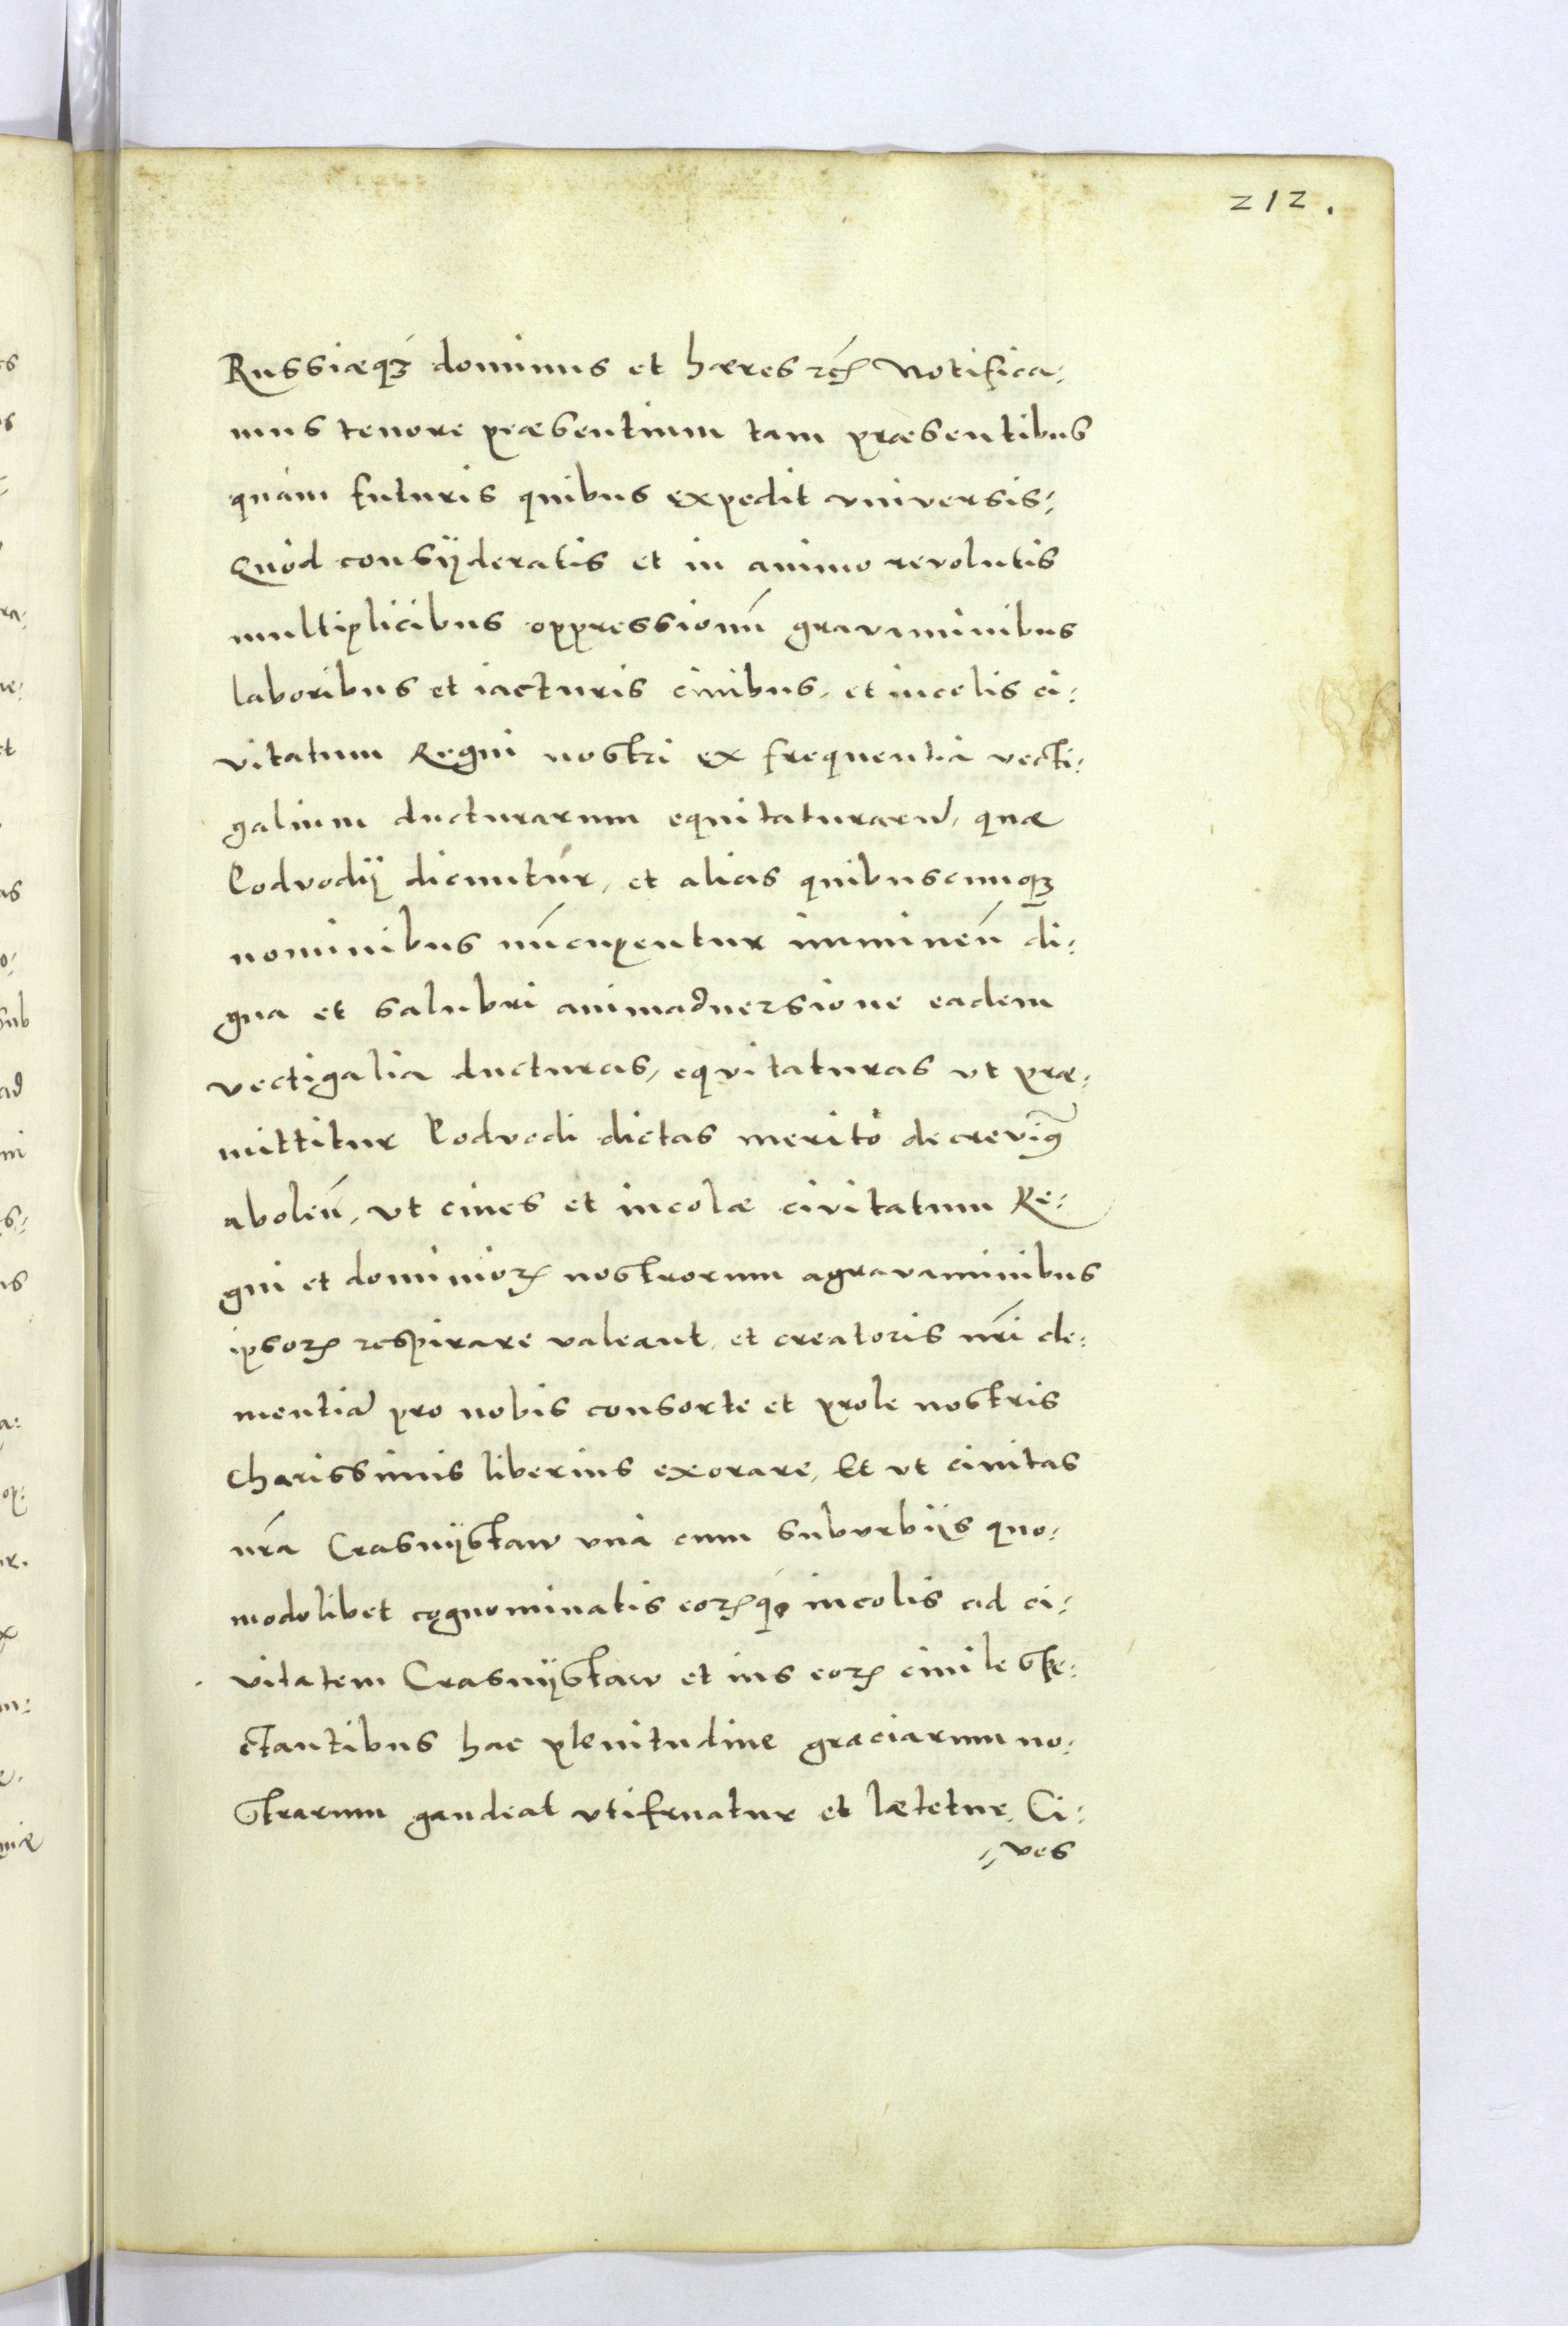 212.
Russiæq₃ dominus et hæres ꝛcꝫ Notifica:
mus tenore præsentium tam præsentibus
quàm futuris quibus expedit vniversis:
Quòd consÿderatis et in animo revolutis
multiplicibus oppressionũ gravaminibus
laboribus et iacturis ciuibus, et incolis ci:
vitatum Regni nostri ex frequentia vecti:
galium ducturarum equitaturarũ, quæ
Podvodÿ dicuntur, et alias quibuscunq₃
nominibus nũcupentur imminen̄ di:
gna et salubri animaduersione eadem
vectigalia ducturas, eqvitaturas vt præ:
mittitur Podvodi dictas meritò decrevimꝰ
abolen̄, vt ciues et incolæ civitatum Re:
gni et dominioꝝ nostrorum agravaminibus
ipsoꝝ respirare valeant, et creatoris nr̃i cle:
mentiã pro nobis consorte et prole nostris
Charissimis liberius exorare, Et vt ciuitas
nr̃a CrasnÿStaw vnà cum subvrbÿs quo:
modolibet cognominatis eoꝝq₃ incolis ad ci:
vitatem CrasnÿStaw et ius eoꝝ ciuile spe:
ctantibus hac plenitudine graciarum no:
strarum gaudeat vtifruatur et lætetur, Ci:
ves